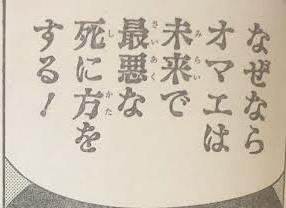 なぜなら
オマエは
未来で
最悪な
死に方を
する！